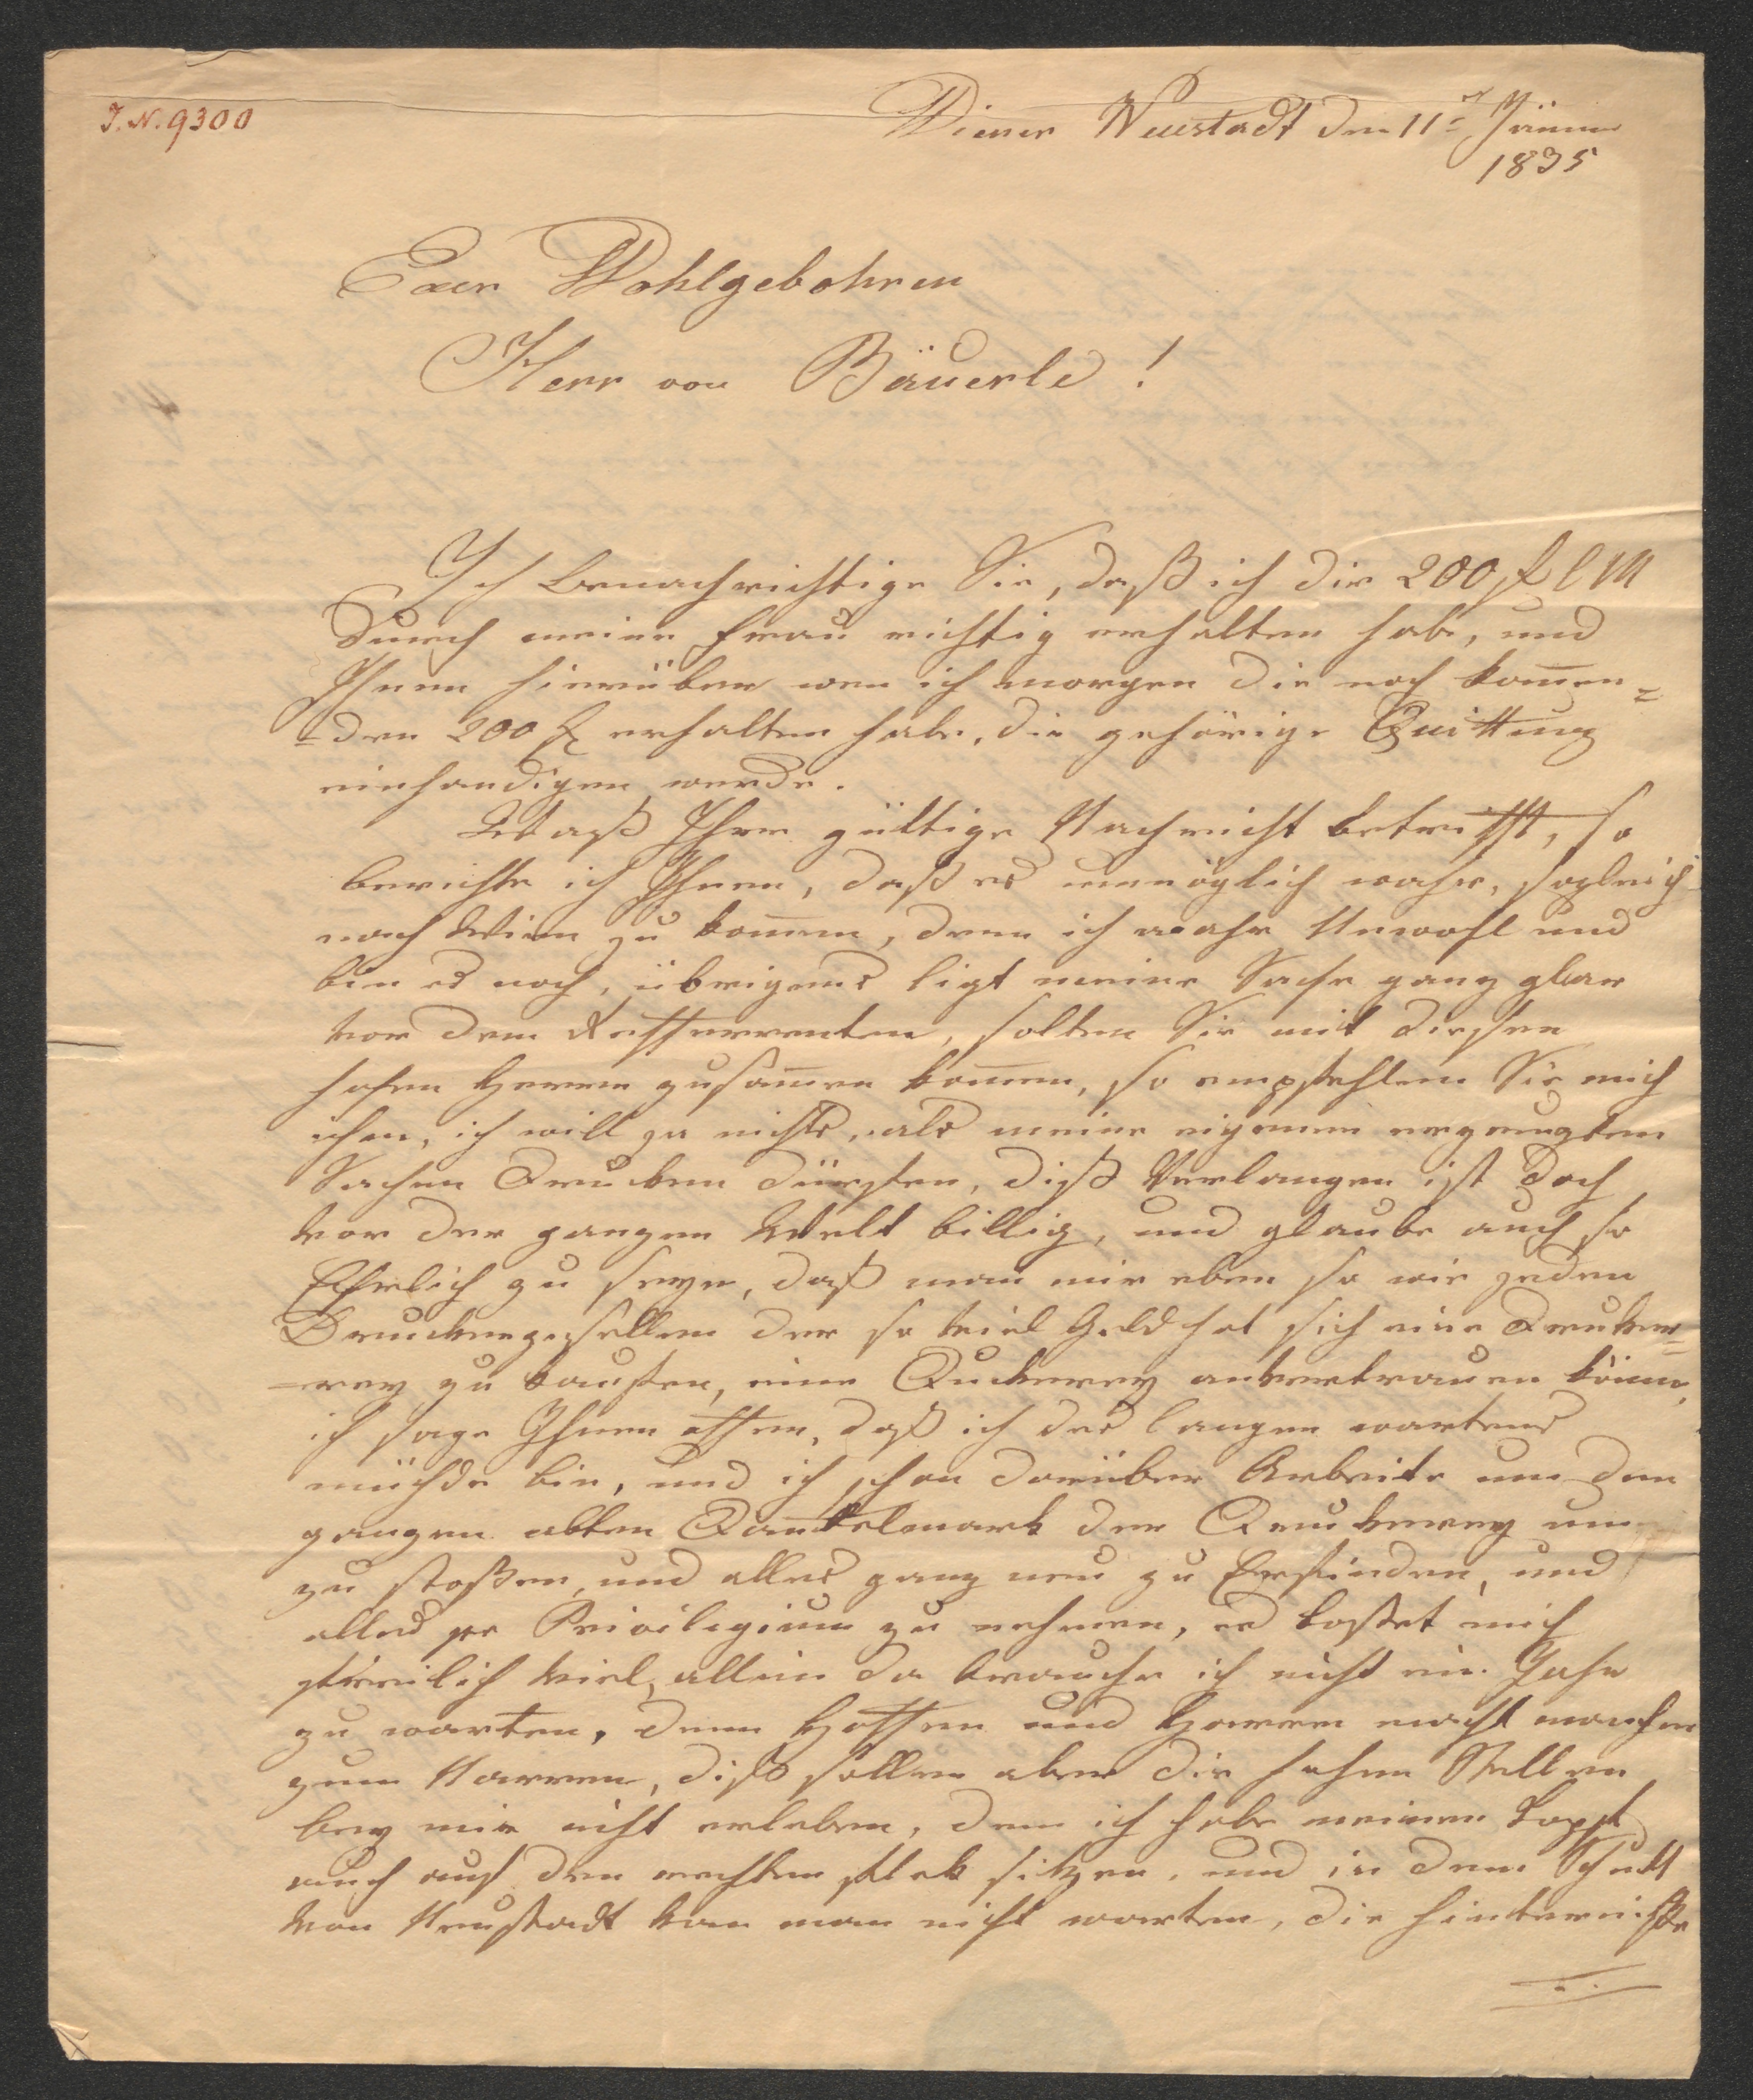 J. N. 9300
Wiener Neustadt den 11t Jänner
1835
Euer Wohlgebohren
Herr von Bäuerle!
Ich benachrichtige Sie, daß ich die 200 f C M
durch meine Frau richtig erhalten habe, und
Ihnen hierüber wen ich morgen die noch kom̄en=
=den 200 f erhalten habe, die gehörige Quittung
einhandigen werde.
Waß Ihre gültige Nachricht betrifft, so
berichte ich Ihnen, daß es unmöglich wahr, sogleich
nach Wien zu kom̄en, denn ich wahr Unwohl und
bin es noch, übrigens ligt meine Sache ganz glar
vor dem Refferenten, solten Sie mit diesen
hohen Herren zusam̄en kom̄en, so empfehlen Sie mich
ihm, ich will ja nichts, als meine eigenen erzeugten
Sachen Drucken dürfen, diß Verlangen ist doch
vor der ganzen Welt billig, und glaube auch so
Ehrlich zu seyn, daß man mir eben so wie jeden
Druckergesellen der so viel Geld hat sich eine Drucke=
=rey zu kaufen, eine Duckerey anvertrauen kön̄e,
ich sage Ihnen offen, daß ich des langen wartens
müchde bin, und ich schon darüber Arbeite um den
ganzen alten Dantelmark der Druckerey um
zu stoßen, und alles ganz neu zu Erfinden, und
alles pr Privilegium zu nehmen, es kostet mich
freilich viel, allein da brauche ich nicht ein Jahr
zu warten, denn Hoffen und Harren macht manchen
zum Narren, diß sollen aber die hohen Stellen
bey mir nicht erleben, den ich habe meinen Kopf
auch auf den rechten flek sitzen, und in dem Schutt
von Neustadt kan man nicht warten, die hinterniße